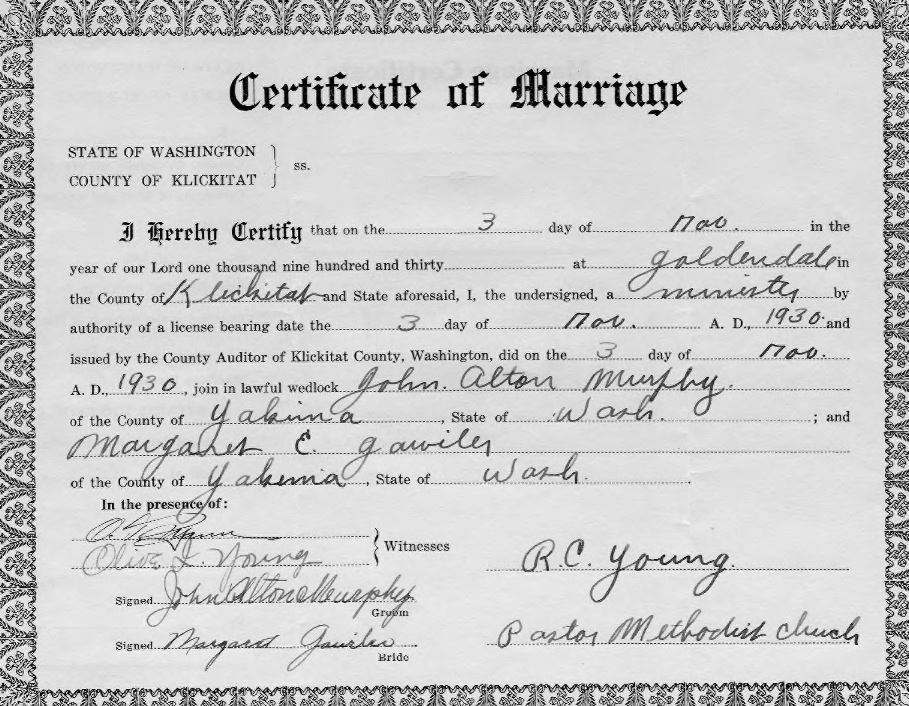 Certificate of Marriage
STATE OF WASHINGTON
COUNTY OF KLICKITAT } ss.
I Hereby Certify that on the 3 day of Nov. in the
year of our Lord one thousand nine hundred and thirty at Goldendale in
the County of Klickitat and State aforesaid, I, the undersigned, a minister by
authority of a license bearing date the 3 day of Nov. A. D., 1930 and
issued by the County Auditor of Klickitat County, Washington, did on the 3 day of Nov.
A. D., 1930, join in lawful wedlock John Alton Murphy.
of the County of Yakima, State of Wash. ; and
Margaret E. Gawiler
of the County of Yakima, State of Wash.
In the presence of:
Olive I. Young } Witnesses
R.C. Young.
Signed John Alton Murphy
Groom
Signed Margaret Gawiler
Bride
Pastor Methodist Church